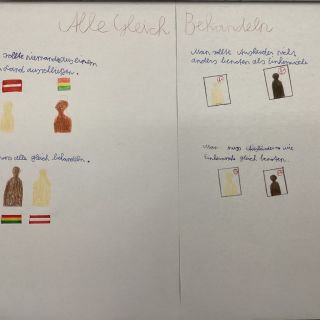 Alle Gleich Behandeln
sollte niemanden aus einem
Land ausschließen.
alle gleich behandeln.
Man sollte Ausländer nicht
anders benoten als Einheimische
Man muss Ausländer wie
Einheimische gleich benoten.